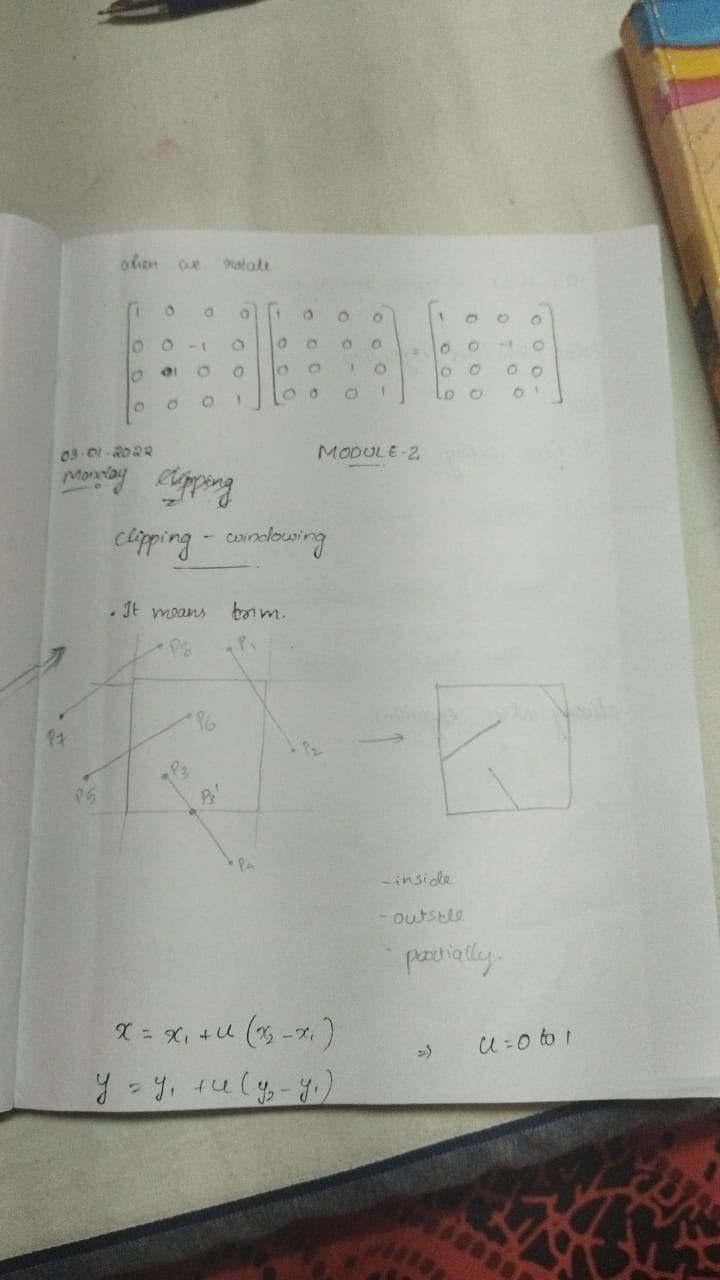 when we rotate
[1 0 0 0] [1 0 0 0] = [1 0 0 0]
[0 0 -1 0] [0 0 0 0] [0 0 -1 0]
[0 1 0 0] [0 0 1 0] [0 0 0 0]
[0 0 0 1] [0 0 0 1] [0 0 0 1]
03.01.2022 MODULE-2
Monday clipping
clipping - windowing
• It means trim.
P8 P1
P7 P6 P2
P5 P3
P3'
P4
-inside
-outside
- partially
x = x₁ + u (x₂ - x₁)
⇒ u = 0 to 1
y = y₁ + u (y₂ - y₁)